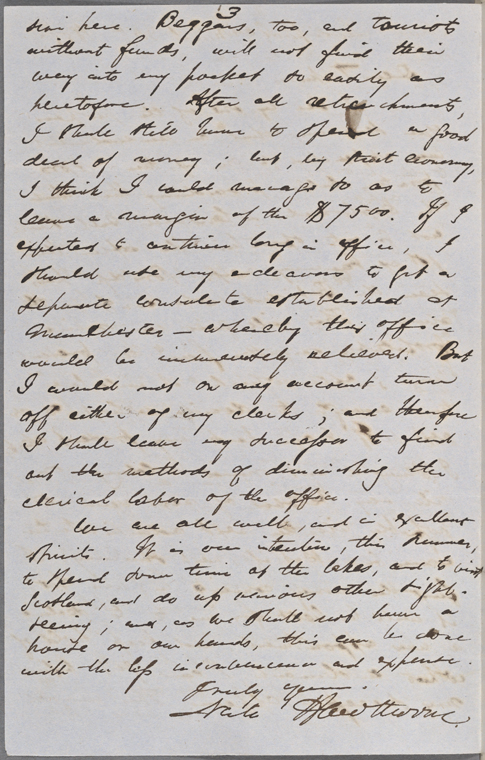 3
sion here. Beggars, too, and tourists
without funds, will not find their
way into my pocket so easily as
heretofore. After all retrenchments,
I shall still have to spend a good
deal of money; but, by strict economy,
I think I could manage so as to
leave a margin of the $7500. If I
expected to continue long in office, I
should use my endeavors to get a
separate consulate established at
Manchester — whereby this office
would be immensely relieved. But
I would not on any account turn
off either of my clerks; and therefore
I shall leave my successor to find
out the methods of diminishing the
clerical labor of the office.
We are all well, and in excellent
spirits. It is our intention, this summer,
to spend some time at the lakes, and to visit
Scotland, and do up various other sight-
seeing; and, as we shall not have a
house on our hands, this can be done
with the less inconvenience and expense.
Truly yours.
Nath Hawthorne.